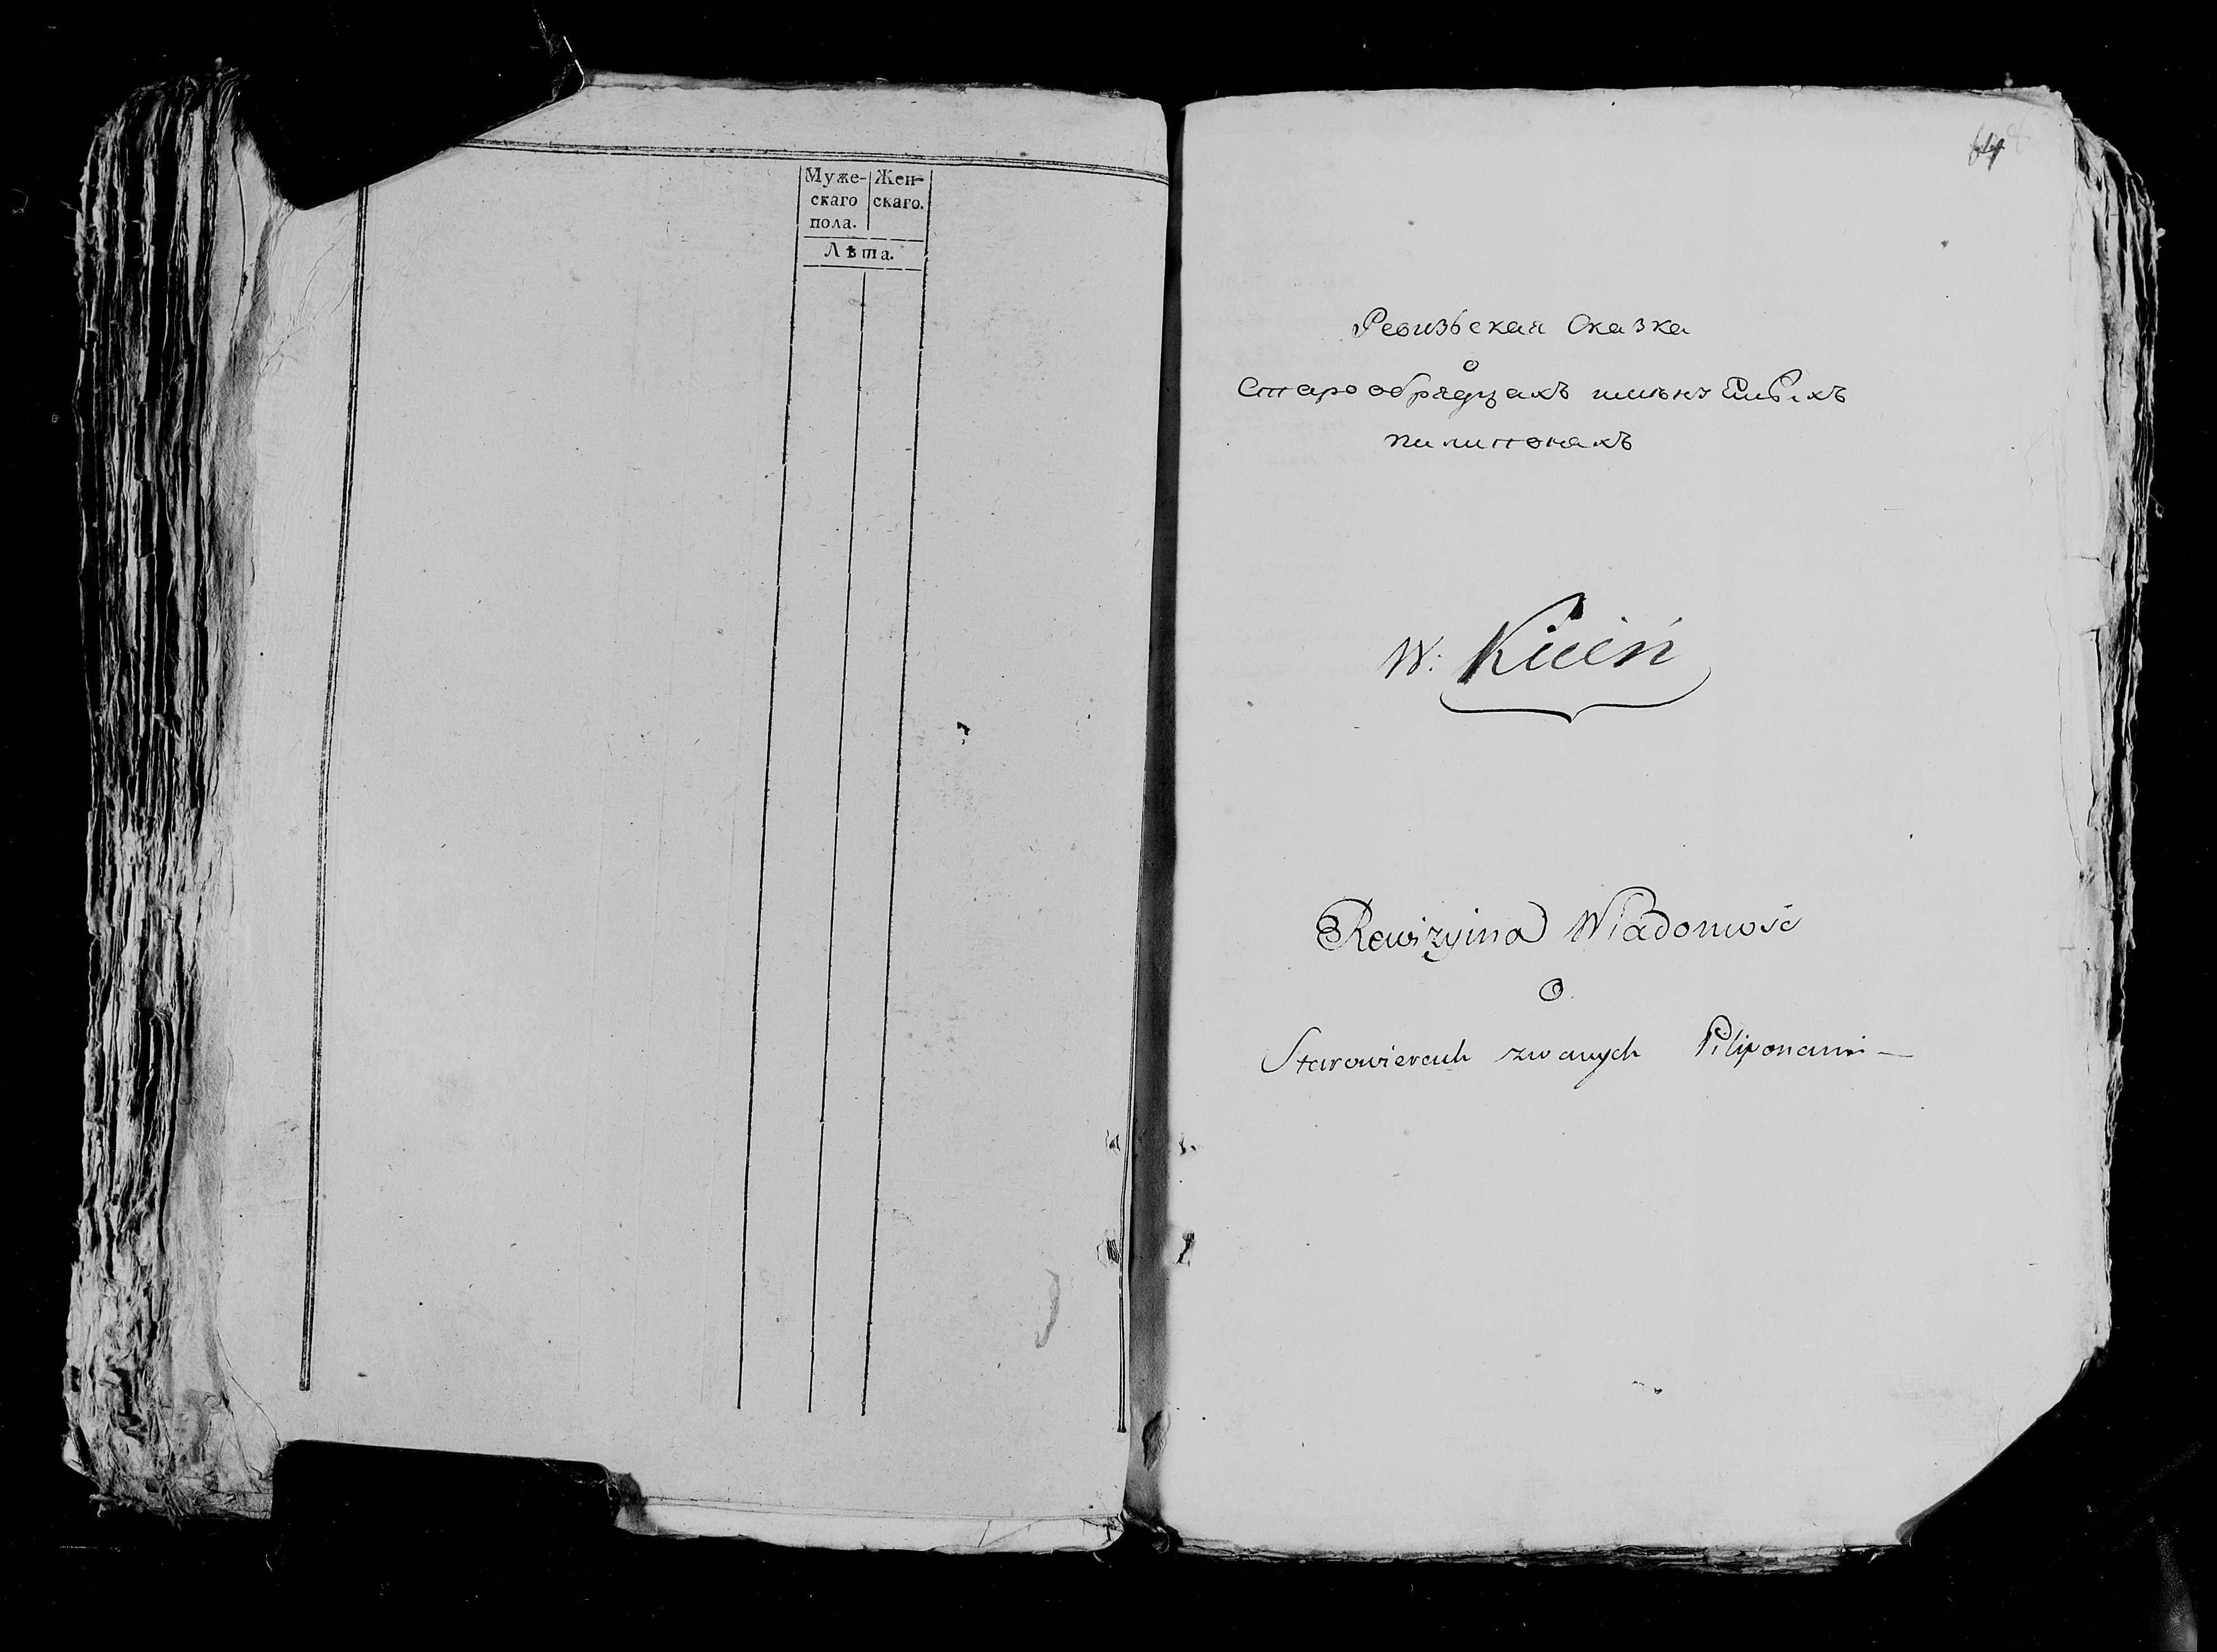 Муже-
скаго
пола.
Жен-
скаго.
Лѣта.
Ревизьская Сказка
о
Старообрядцахъ
пилипонахъ
W: Kicin
Rewizyina Wiadomość
O
Starowierach zwanych Piliponami —